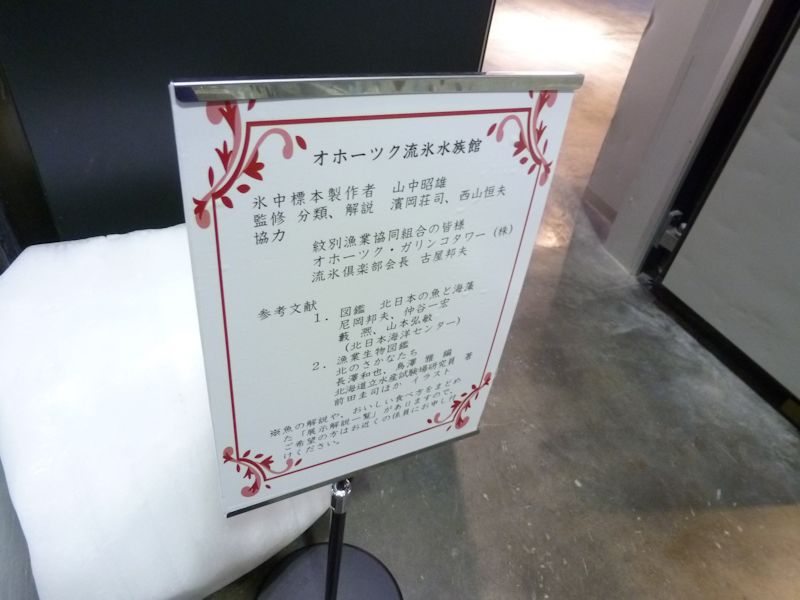 オホーツク流氷水族館
氷中標本製作者　山中昭雄
監修 分類、解説　濱岡荘司、西山恒夫
協力
紋別漁業協同組合の皆様
オホーツク・ガリンコタワー（株）
流氷倶楽部会長　古屋邦夫
参考文献
1．図鑑　北日本の魚と海藻
尼岡邦夫、仲谷一宏
藪　熙、山本弘敏
（北日本海洋センター）
2．漁業生物図鑑
北のさかなたち
長澤和也、鳥澤　雅　編
北海道立水産試験場研究員　著
前田圭司ほか　イラスト
※魚の解説や、おいしい食べ方をまとめ
た「展示解説一覧」がありますので、
ご希望の方はお近くの係員にお申し付
けください。